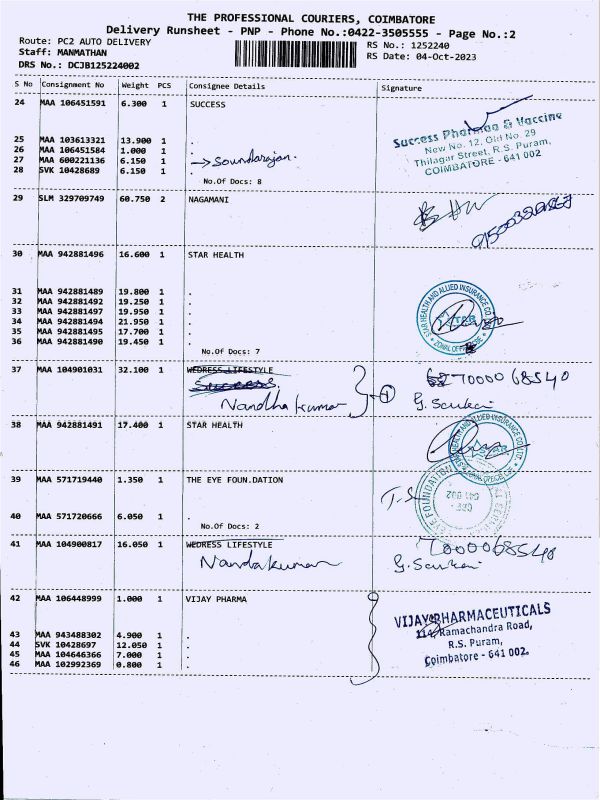 THE PROFESSIONAL COURIERS, COIMBATORE
Delivery Runsheet - PNP - Phone No.:0422-3505555 - Page No.:2
Route: PC2 AUTO DELIVERY
RS No.: 1252240
Staff: MANMATHAN
RS Date: 04-Oct-2023
DRS No.: DCJB125224002
S No Consignment No Weight PCS Consignee Details Signature
24 MAA 106451591 6.300 1 SUCCESS
Success Pharma & Vaccine
New No. 12, Old No. 29
Thilagar Street, R.S. Puram,
COIMBATORE - 641 002
25 MAA 103613321 13.900 1 .
26 MAA 106451584 1.000 1 .
27 MAA 600221136 6.150 1 . → Soundarajan.
28 SVK 10428689 6.150 1 .
No.Of Docs: 8
29 SLM 329709749 60.750 2 NAGAMANI
30 MAA 942881496 16.600 1 STAR HEALTH
31 MAA 942881489 19.800 1 .
32 MAA 942881492 19.250 1 .
33 MAA 942881497 19.950 1 .
34 MAA 942881494 21.950 1 .
35 MAA 942881495 17.700 1 .
36 MAA 942881490 19.450 1 .
No.Of Docs: 7
STAR HEALTH AND ALLIED INSURANCE CO
STAR
37 MAA 104901031 32.100 1 WEDRESS LIFESTYLE
Success.
Nandha kumar
70000 68540
G. Sankari
38 MAA 942881491 17.400 1 STAR HEALTH
39 MAA 571719440 1.350 1 THE EYE FOUN.DATION
T.S
40 MAA 571720666 6.050 1 .
No.Of Docs: 2
41 MAA 104900817 16.050 1 WEDRESS LIFESTYLE
Nandakumar
7000068540
G. Sankari
42 MAA 106448999 1.000 1 VIJAY PHARMA
VIJAY PHARMACEUTICALS
114, Ramachandra Road,
R.S. Puram,
Coimbatore - 641 002.
43 MAA 943488302 4.900 1 .
44 SVK 10428697 12.050 1 .
45 MAA 104646366 7.000 1 .
46 MAA 102992369 0.800 1 .